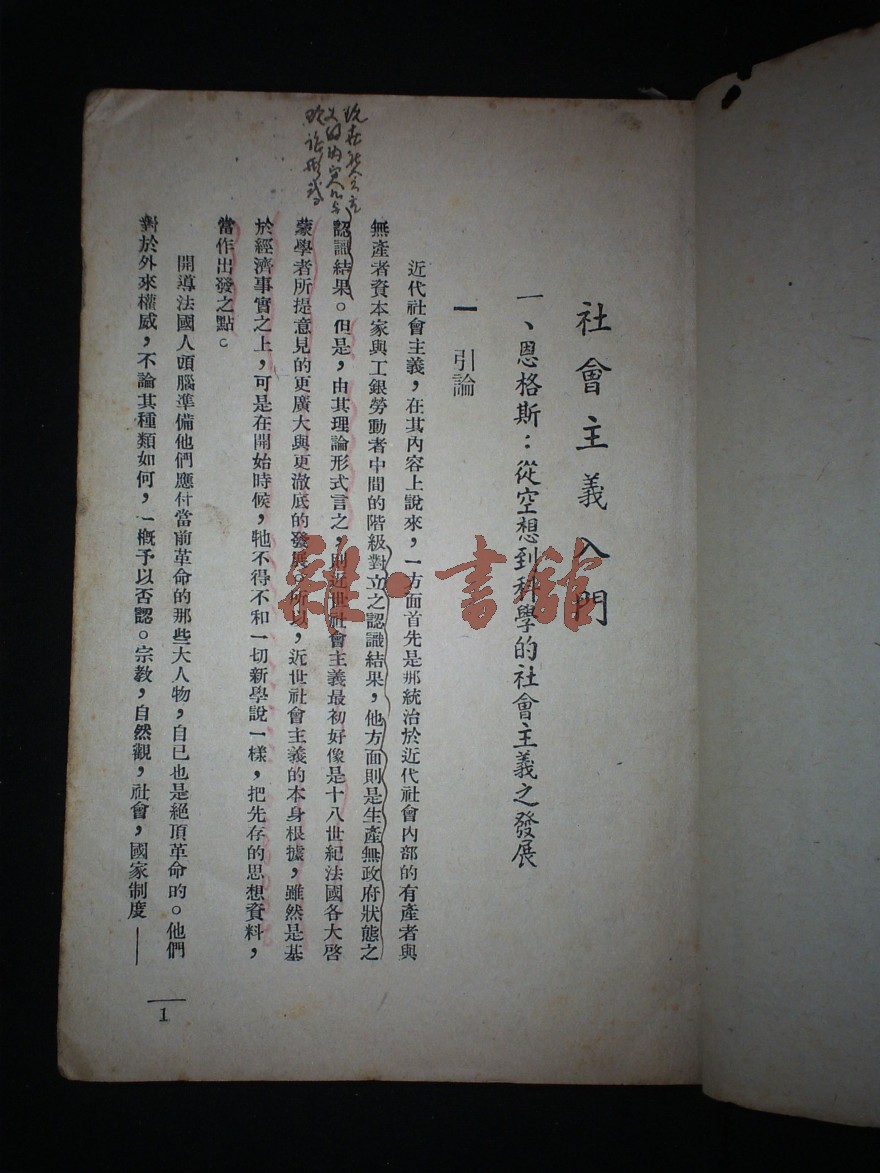 社會主義入門
一、恩格斯：從空想到科學的社會主義之發展
一 引論
近代社會主義，在其內容上說來，一方面首先是那統治於近代社會內部的有產者與
無產者資本家與工銀勞動者中間的階級對立之認識結果，他方面則是生產無政府狀態之
認識結果。但是，由其理論形式言之，則近世社會主義最初好像是十八世紀法國各大啓
蒙學者所提意見的更廣大與更澈底的發展。所以，近世社會主義的本身根據，雖然是基
於經濟事實之上，可是在開始時候，牠不得不和一切新學說一樣，把先存的思想資料，
當作出發之點。
開導法國人頭腦準備他們應付當前革命的那些大人物，自己也是絕頂革命的。他們
對於外來權威，不論其種類如何，一概予以否認。宗敎，自然觀，社會，國家制度——
1
雜·書館